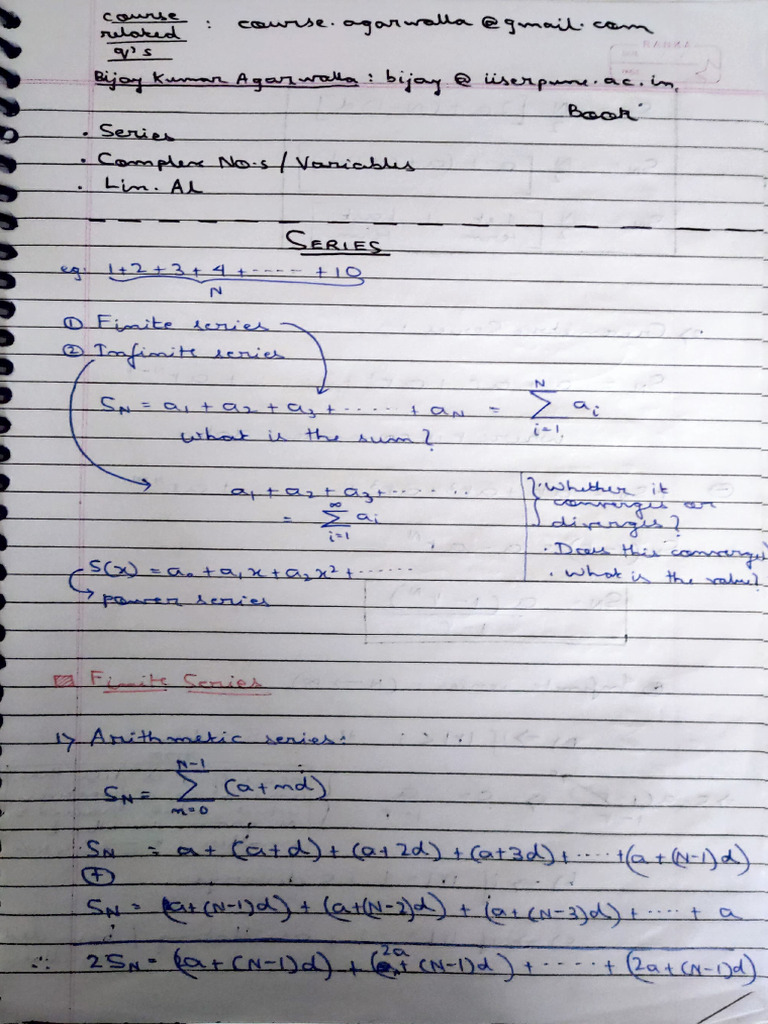 course : course.agarwalla@gmail.com
related
q's
Bijay Kumar Agarwalla : bijay @ iiserpune.ac.in,
Book
. Series
. Complex No.s / Variables
. Lin. Al
SERIES
eg. 1+2+3+4+----+10
N
① Finite series
② Infinite series
S_N = a₁ + a₂ + a₃ + ...... + a_N = Σ_{i=1}^{N} a_i
what is the sum?
a₁ + a₂ + a₃ + ........
= Σ_{i=1}^{∞} a_i
· Whether it
converges or
diverges?
· Does this converge?
· What is the value?
S(x) = a₀ + a₁x + a₂x² + ......
→ power series
Finite Series
1> Arithmetic series:
S_N = Σ_{n=0}^{N-1} (a+nd)
S_N = a + (a+d) + (a+2d) + (a+3d) + .... + (a+(N-1)d)
(+)
S_N = (a+(N-1)d) + (a+(N-2)d) + (a+(N-3)d) + .... + a
∴ 2S_N = (2a+(N-1)d) + (2a+(N-1)d) + .... + (2a+(N-1)d)